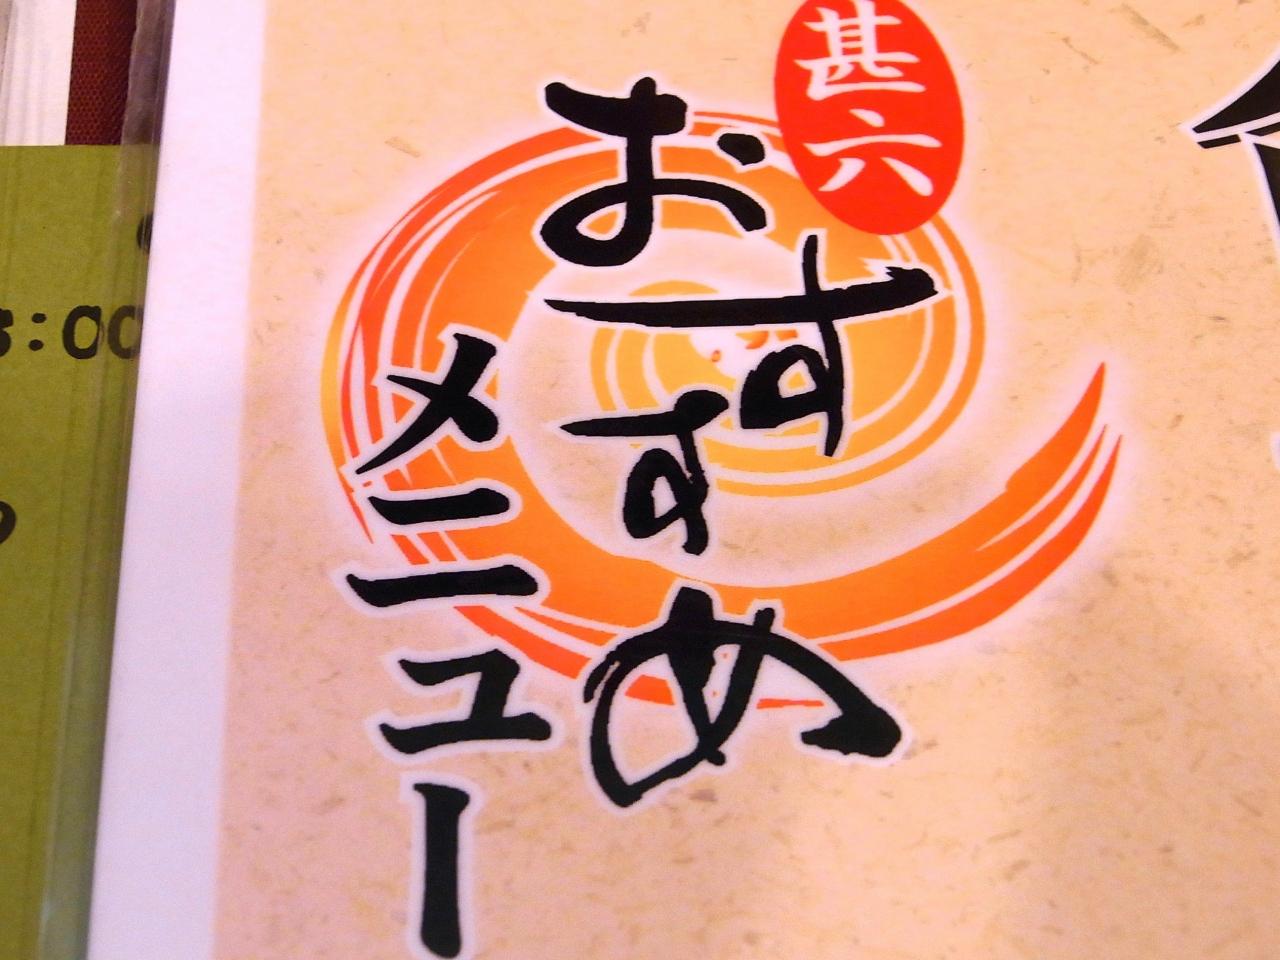 甚六
おすすめ
メニュー
:00